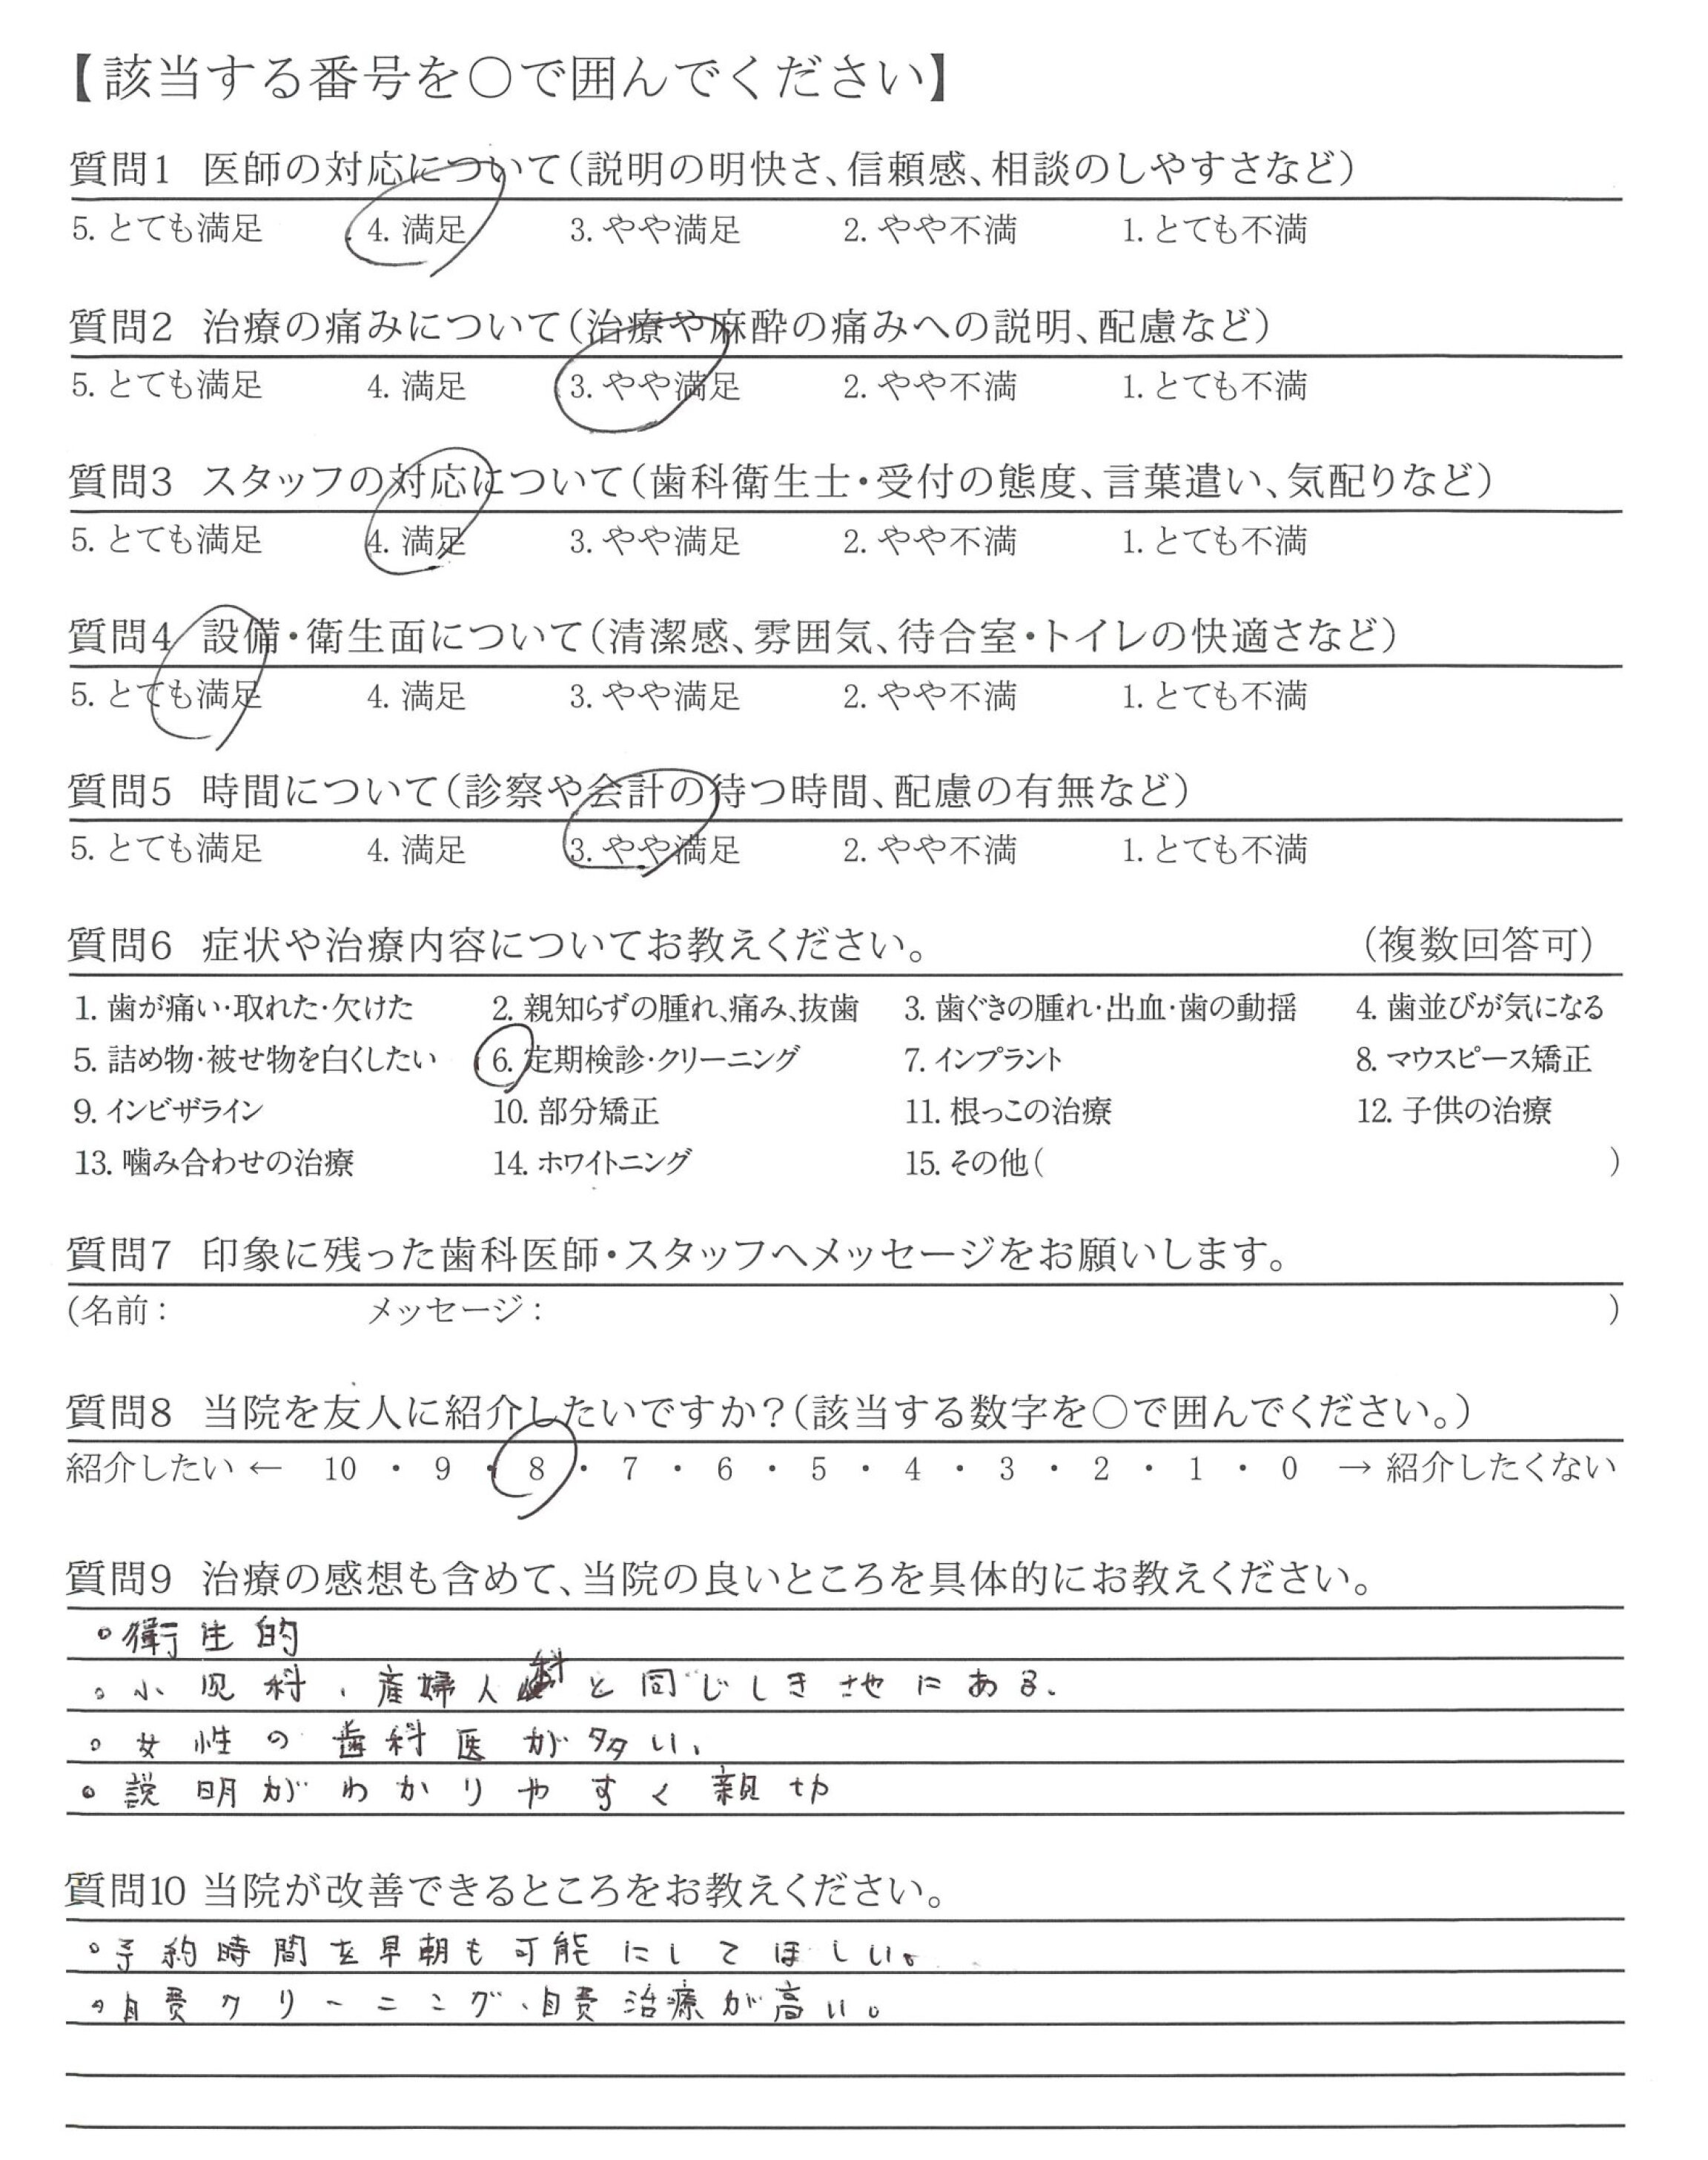 【該当する番号を〇で囲んでください】
質問1 医師の対応について(説明の明快さ、信頼感、相談のしやすさなど)
5. とても満足 4. 満足 3. やや満足 2. やや不満 1. とても不満
質問2 治療の痛みについて(治療や麻酔の痛みへの説明、配慮など)
5. とても満足 4. 満足 3. やや満足 2. やや不満 1. とても不満
質問3 スタッフの対応について(歯科衛生士・受付の態度、言葉遣い、気配りなど)
5. とても満足 4. 満足 3. やや満足 2. やや不満 1. とても不満
質問4 設備・衛生面について(清潔感、雰囲気、待合室・トイレの快適さなど)
5. とても満足 4. 満足 3. やや満足 2. やや不満 1. とても不満
質問5 時間について(診察や会計の待つ時間、配慮の有無など)
5. とても満足 4. 満足 3. やや満足 2. やや不満 1. とても不満
質問6 症状や治療内容についてお教えください。 (複数回答可)
1. 歯が痛い・取れた・欠けた 2. 親知らずの腫れ、痛み、抜歯 3. 歯ぐきの腫れ・出血・歯の動揺 4. 歯並びが気になる
5. 詰め物・被せ物を白くしたい 6. 定期検診・クリーニング 7. インプラント 8. マウスピース矯正
9. インビザライン 10. 部分矯正 11. 根っこの治療 12. 子供の治療
13. 噛み合わせの治療 14. ホワイトニング 15. その他( )
質問7 印象に残った歯科医師・スタッフへメッセージをお願いします。
(名前: メッセージ: )
質問8 当院を友人に紹介したいですか?(該当する数字を〇で囲んでください。)
紹介したい ← 10 ・ 9 ・ 8 ・ 7 ・ 6 ・ 5 ・ 4 ・ 3 ・ 2 ・ 1 ・ 0 → 紹介したくない
質問9 治療の感想も含めて、当院の良いところを具体的にお教えください。
。衛生的
。小児科、産婦人科と同じしき地にある。
。女性の歯科医が多い、
。説明がわかりやすく親切
質問10 当院が改善できるところをお教えください。
。予約時間を早朝も可能にしてほしい。
。自費クリーニング、自費治療が高い。